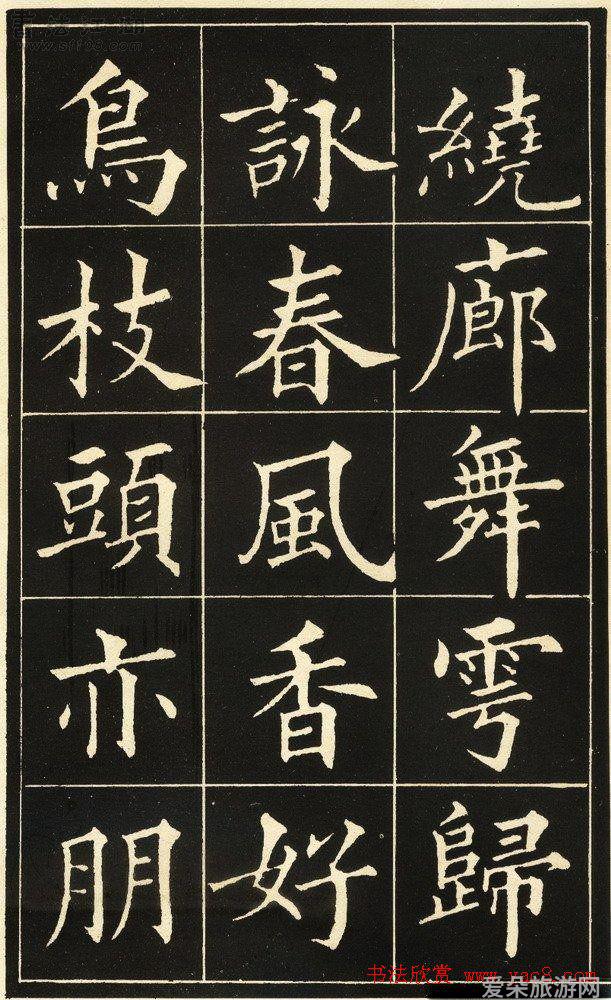 繞廊舞雩歸
詠春風香好
鳥枝頭亦朋
书法欣赏 www.yac8.com
爱朵旅游网